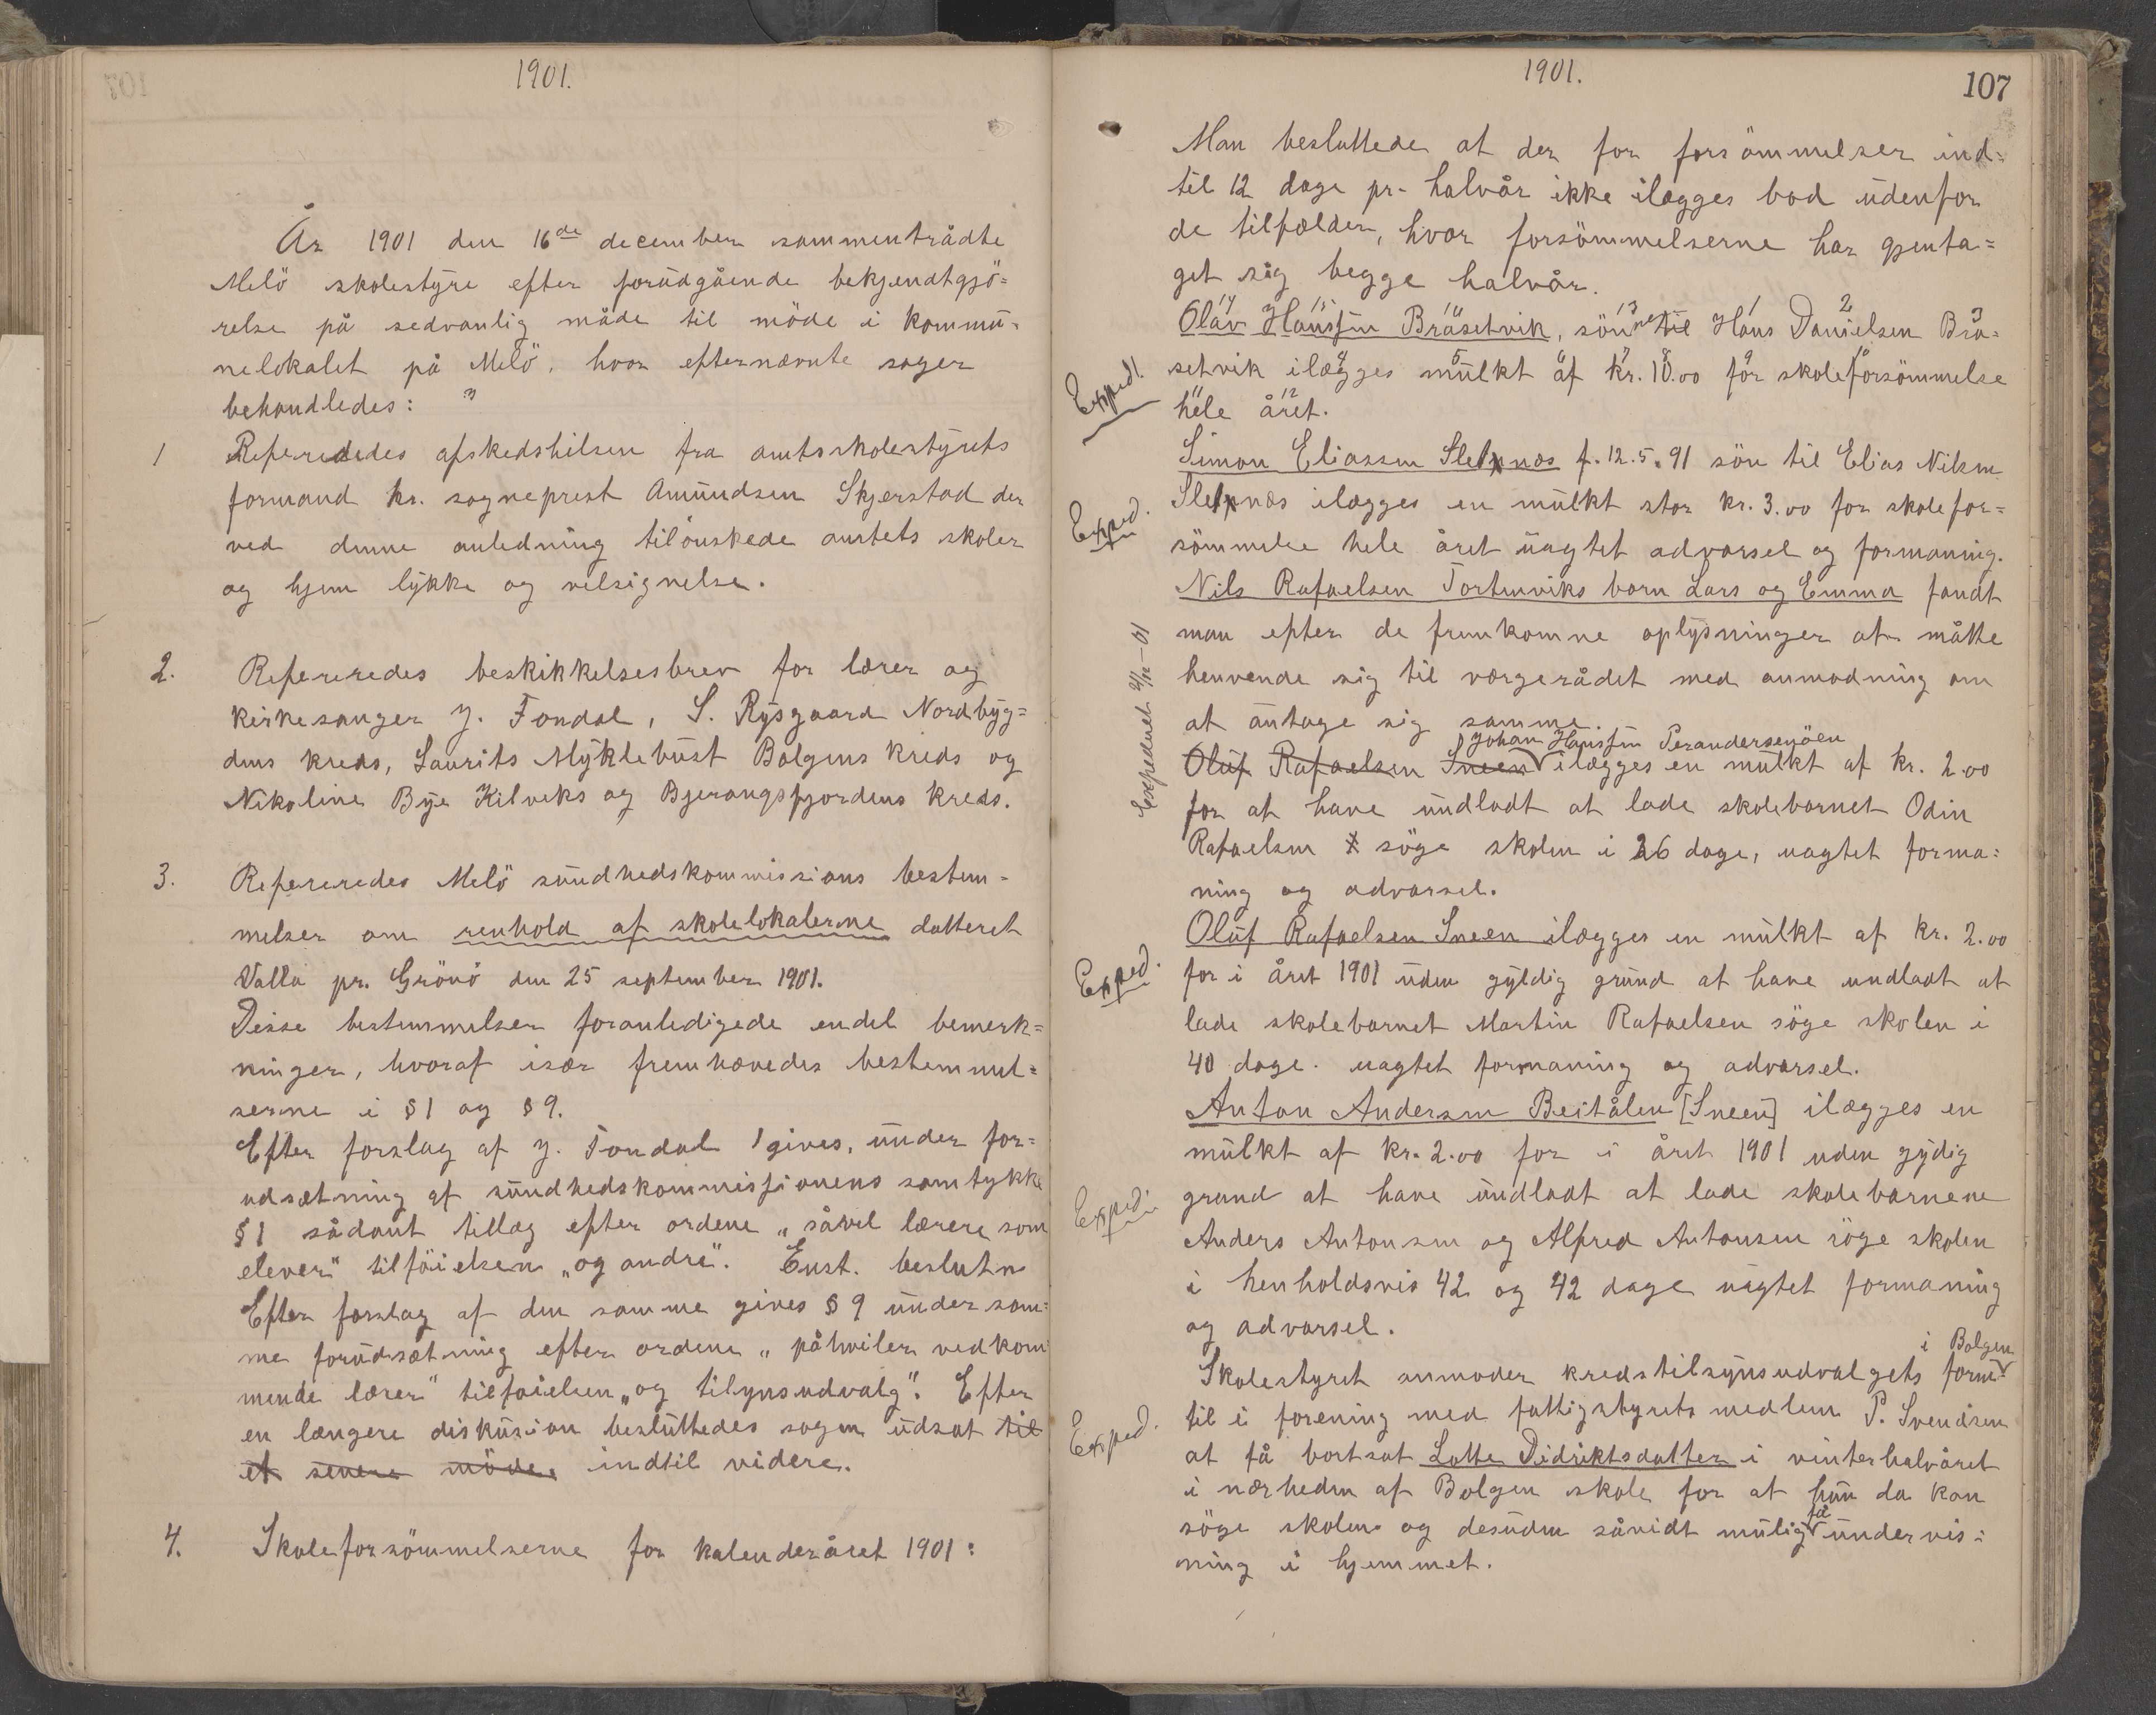 1901.
År 1901 den 16de december sammentrådte
Melö skolestyre efter forudgående bekjendtgjö=
relse på sedvanlig måde til möde i kommu=
nelokalet på Melö, hvor efternævnte sager
behandledes:
1 Refereredes afskedshilsen fra amtsskolestyrets
formand hr. sogneprest Amundsen Skjerstad der
ved denne anledning tilönskede amtets skoler
og hjem lykke og velsignelse.
2. Refereredes beskikkelsesbrev for lærer og
kirkesanger J. Fondal, S. Rysgaard Nordbyg=
dens kreds, Laurits Myklebust Bolgens kreds og
Nikoline Bye Kilviks og Bjerangsfjordens kreds.
3. Refereredes Melö sundhedskommissions bestem=
melser om renhold af skolelokalerne datteret
Valla pr. Grönö den 25 september 1901.
Disse bestemmelser foranledigede endel bemerk=
ninger, hvoraf især fremhævedes bestemmel=
serne i § 1 og § 9.
Efter forslag af J. Fondal gives, under for=
udsætning af sundhedskommissionens samtykke
§ 1 sådant tillæg efter ordene „såvel lærere som
elever“ tilföielsen „og andre“. Enst. beslutn
Efter forslag af den samme gives § 9 under sam=
me forudsætning efter ordene „påhviler vedkom
mende lærer“ tilföielsen „og tilynsudvalg“. Efter
en længere diskusion besluttedes sagen udsat til
et senere möde. indtil videre.
4. Skoleforsömmelserne for kalenderåret 1901:
1901.
107
Man besluttede at der for forsömmelser ind=
til 12 dage pr. halvår ikke ilægges bod udenfor
de tilfælder, hvor forsömmelserne har gjenta=
get sig begge halvår.
Olav Hanssen Bråsetvik, sönne til Hans Danielsen Brå=
Exped!
setvik ilægges mulkt af kr. 10.00 for skoleforsömmelse
hele året.
Simon Eliassen Slepnæs f. 12.5.91 sön til Elias Nilsen
Exped.
Slepnæs ilægges en mulkt stor kr. 3.00 for skolefor=
sömmelse hele året uagtet advarsel og formaning.
Nils Rafaelsen Tortenviks barn Lars og Emma fandt
man efter de fremkomne oplysninger at måtte
henvende sig til værgerådet med anmodning om
at antage sig samme.
Johan Hanssen Perandersenöen
Oluf Rafaelsen Sneen ilægges en mulkt af kr. 2.00
for at have undladt at lade skolebarnet Odin
Rafaelsen söge skolen i 26 dage, uagtet forma=
ning og advarsel.
Oluf Rafaelsen Sneen ilægges en mulkt af kr. 2.00
Exped.
for i året 1901 uden gyldig grund at have undladt at
lade skolebarnet Martin Rafaelsen söge skolen i
40 dage. uagtet formaning og advarsel.
Anton Andersen Beitålen [Sneen] ilægges en
mulkt af kr. 2.00 for i året 1901 uden gydig
Exped.
grund at have undladt at lade skolebarnene
Anders Antonsen og Alfred Antonsen söge skolen
i henholdsvis 42 og 42 dage uagtet formaning
og advarsel.
i Bolgen
Skolestyret anmoder kredstilsynsudvalgets form
Exped.
til i forening med fattigstyrets medlem P. Svendsen
at få bortsat Lotte Didriktsdatter i vinterhalvåret
i nærheden af Bolgen skole for at hun da kan
söge skolen og desuden såvidt mulig få undervis=
ning i hjemmet.